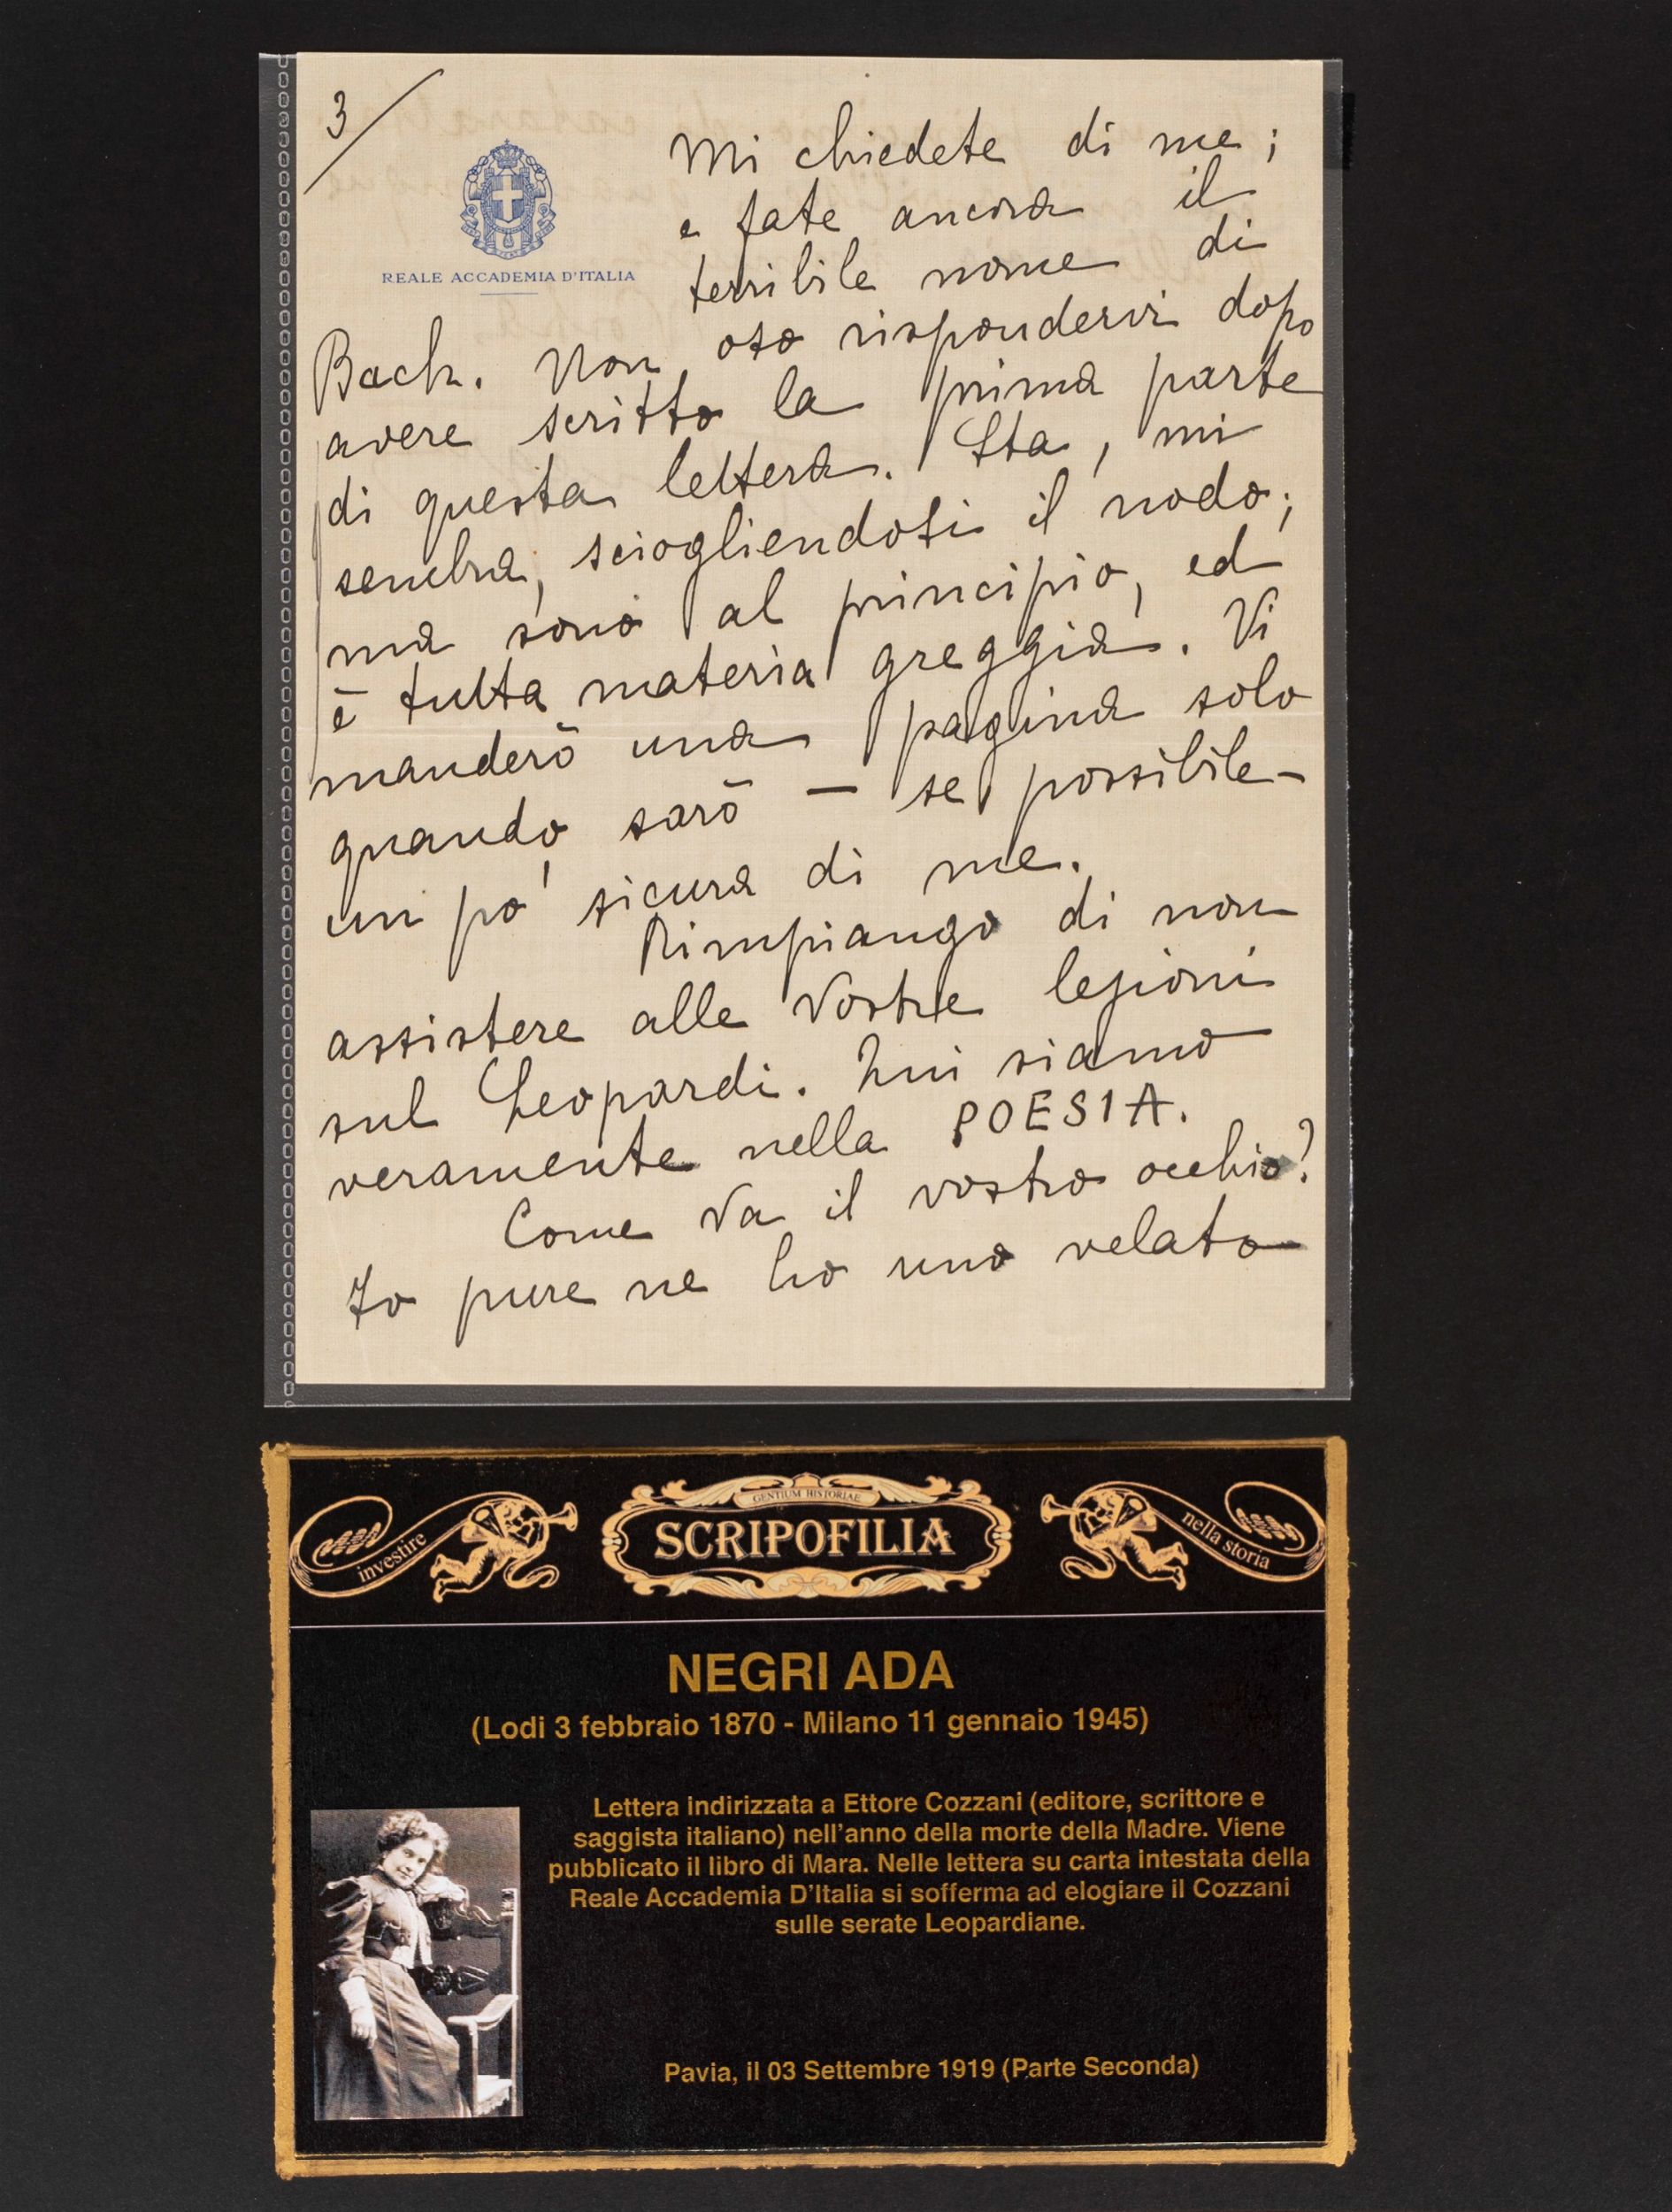 3/
REALE ACCADEMIA D'ITALIA
Mi chiedete di me;
e fate ancora il
terribile nome di
Bach. Non oso rispondervi dopo
avere scritto la prima parte
di questa lettera. Sta, mi
sembra, sciogliendosi il nodo;
ma sono al principio, ed
è tutta materia greggia. Vi
manderò una pagina solo
quando sarò — se possibile —
un po' sicura di me.
Rimpiango di non
assistere alle Vostre lezioni
sul Leopardi. Lui siamo
veramente nella POESIA.
Come va il vostro occhio?
Io pure ne ho uno velato
GENTIUM HISTORIAE
investire
SCRIPOFILIA
nella storia
NEGRI ADA
(Lodi 3 febbraio 1870 - Milano 11 gennaio 1945)
Lettera indirizzata a Ettore Cozzani (editore, scrittore e
saggista italiano) nell'anno della morte della Madre. Viene
pubblicato il libro di Mara. Nelle lettera su carta intestata della
Reale Accademia D'Italia si sofferma ad elogiare il Cozzani
sulle serate Leopardiane.
Pavia, il 03 Settembre 1919 (Parte Seconda)